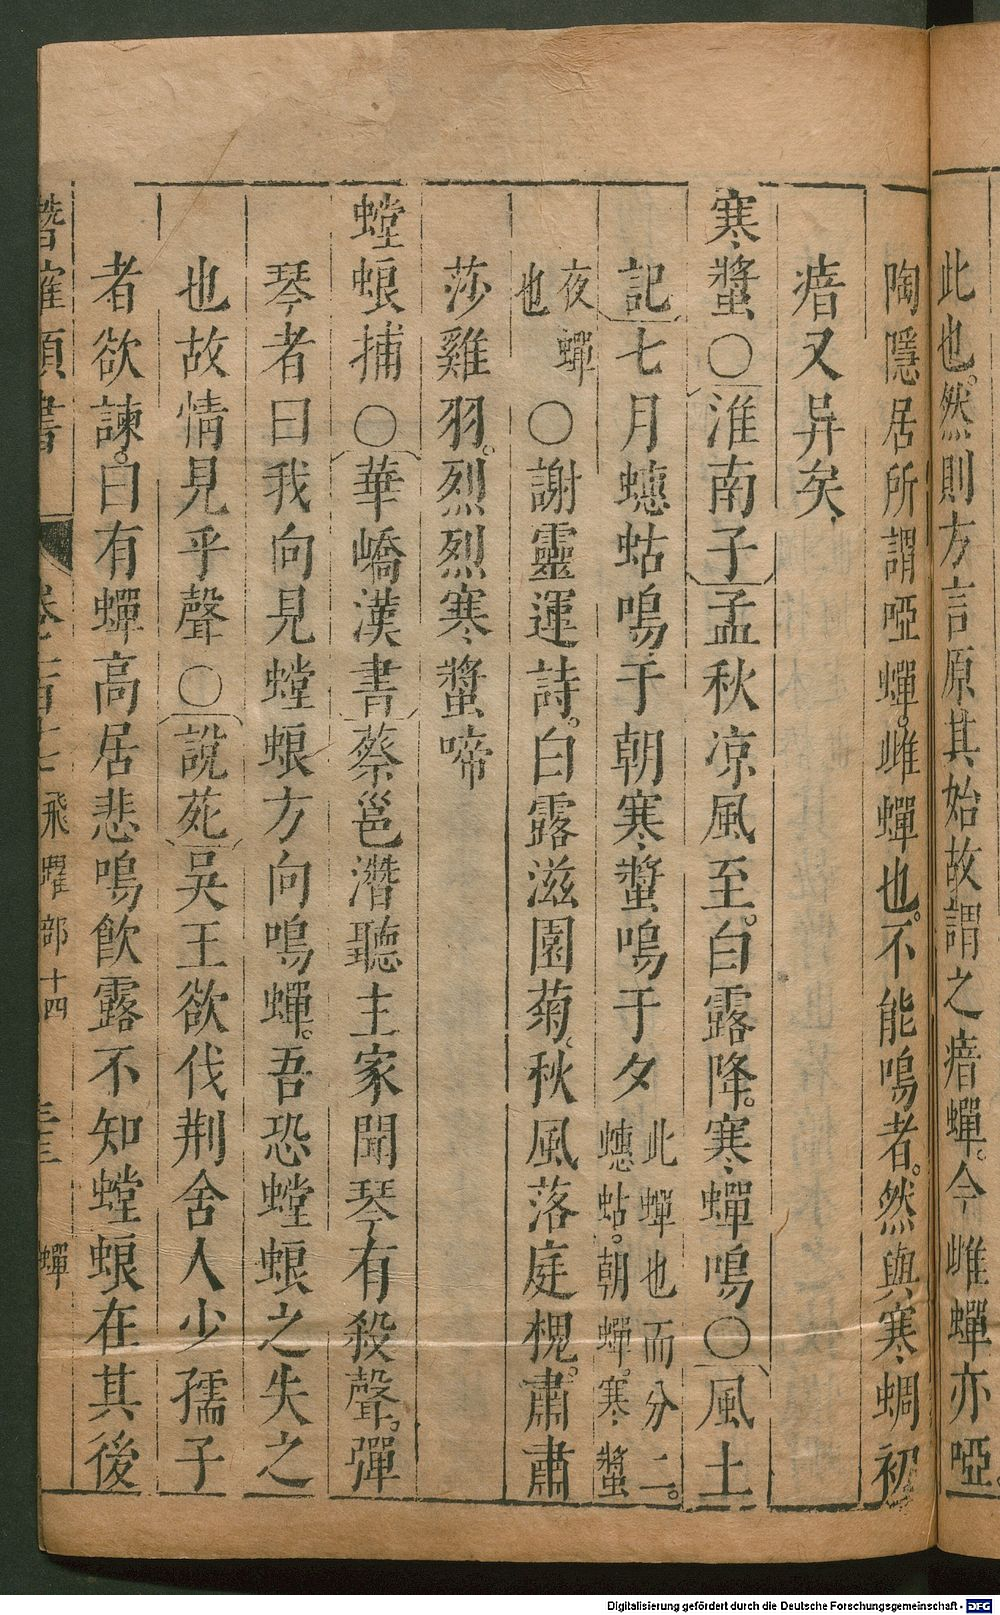 此也。然則方言原其始故謂之瘖蟬。今雌蟬亦啞。
陶隱居所謂啞蟬。雌蟬也。不能鳴者。然與寒蜩初
瘖又异矣
寒螿〇淮南子孟秋涼風至。白露降。寒蟬鳴〇風土
記七月蟪蛄鳴于朝寒螿鳴于夕此蟬也而分二。
蟪蛄。朝蟬。寒螿
夜蟬
也〇謝靈運詩。白露滋園菊。秋風落庭槐。肅肅
莎雞羽。烈烈寒螿啼
螳蜋捕〇華嶠漢書蔡邕潛聽主家聞琴有殺聲。彈
琴者曰我向見螳蜋方向鳴蟬。吾恐螳蜋之失之
也故情見乎聲〇說苑吳王欲伐荆舍人少孺子
者欲諫。曰有蟬高居悲鳴飲露不知螳蜋在其後
潛確類書 卷一百十七 飛躍部十四 蟬
Digitalisierung gefördert durch die Deutsche Forschungsgemeinschaft - DFG